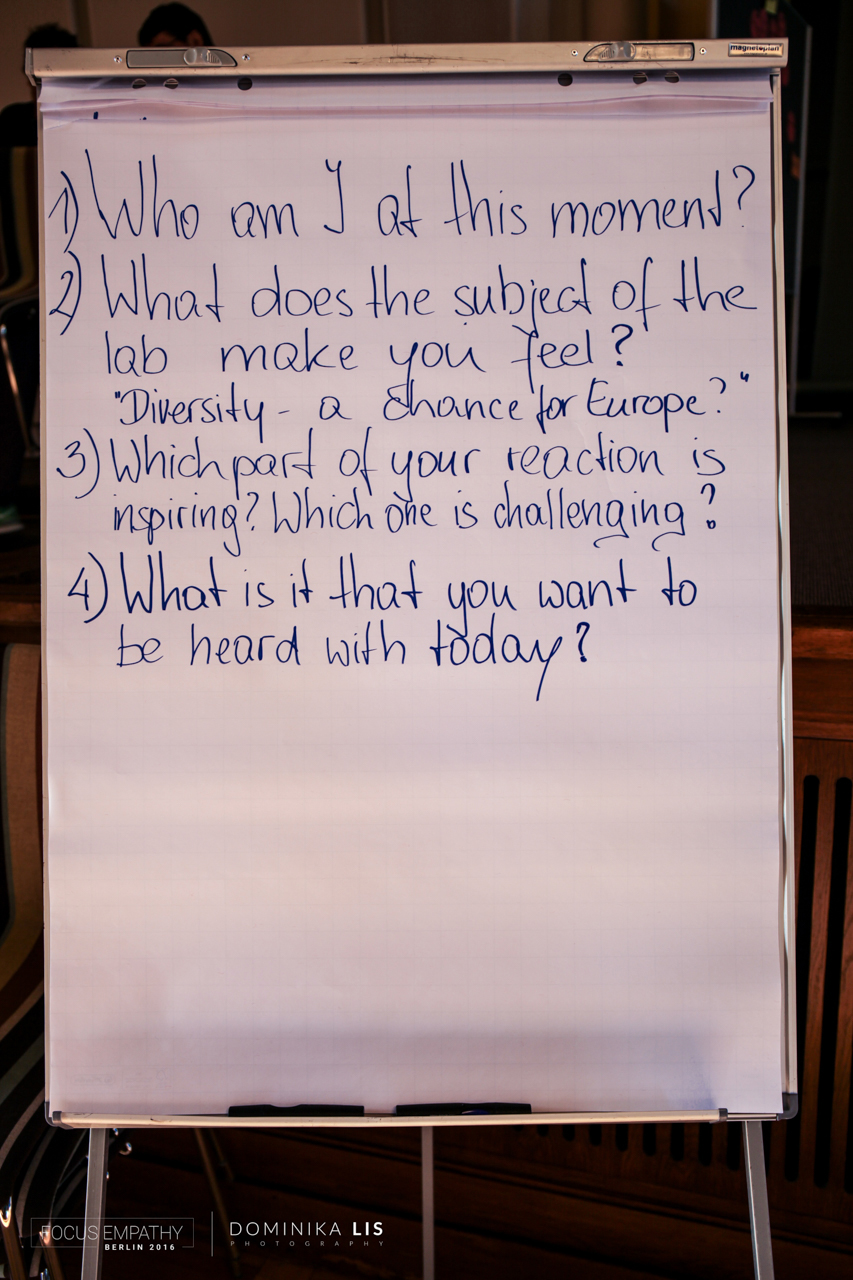 magnetoplan
1) Who am I at this moment?
2) What does the subject of the
lab make you feel?
"Diversity - a chance for Europe?"
3) Which part of your reaction is
inspiring? Which one is challenging?
4) What is it that you want to
be heard with today?
FOCUS EMPATHY
BERLIN 2016
DOMINIKA LIS
PHOTOGRAPHY